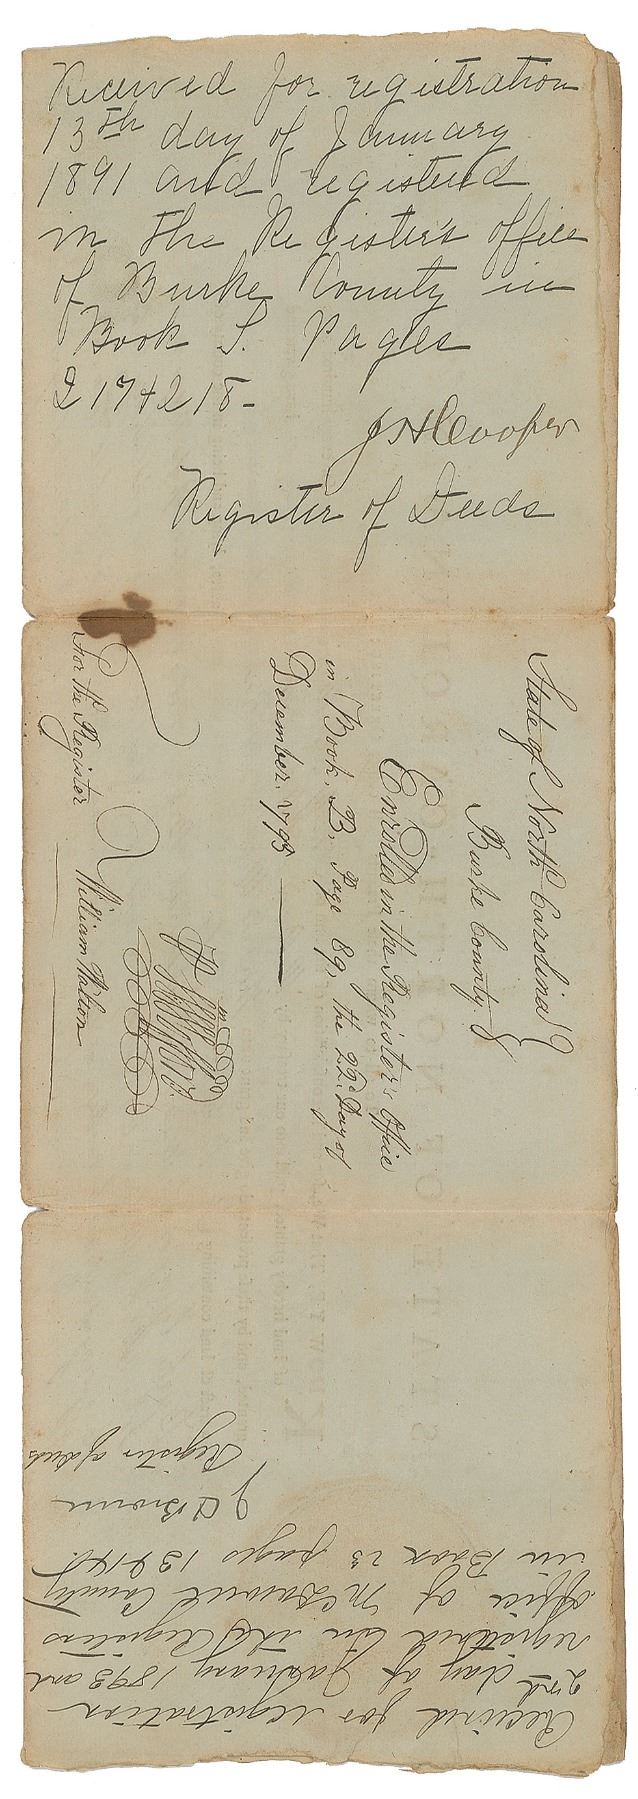 Received for registration
13th day of January
1891 and registered
in the Register's office
of Burke County in
Book S. Pages
217 & 218-
J S H Cooper
Register of Deeds
State of North Carolina
Burke County
Enrolled in the Register's Office
in Book, B, Page 89, the 22d. Day of
December. 1793
William Walton
For the Register
Received for registration
2nd day of January 1893 and
registered in the Registers
office of McDowell County
in Book pages 13 & 14.
J A Brown
Register of Deeds
STATE OF NORTH